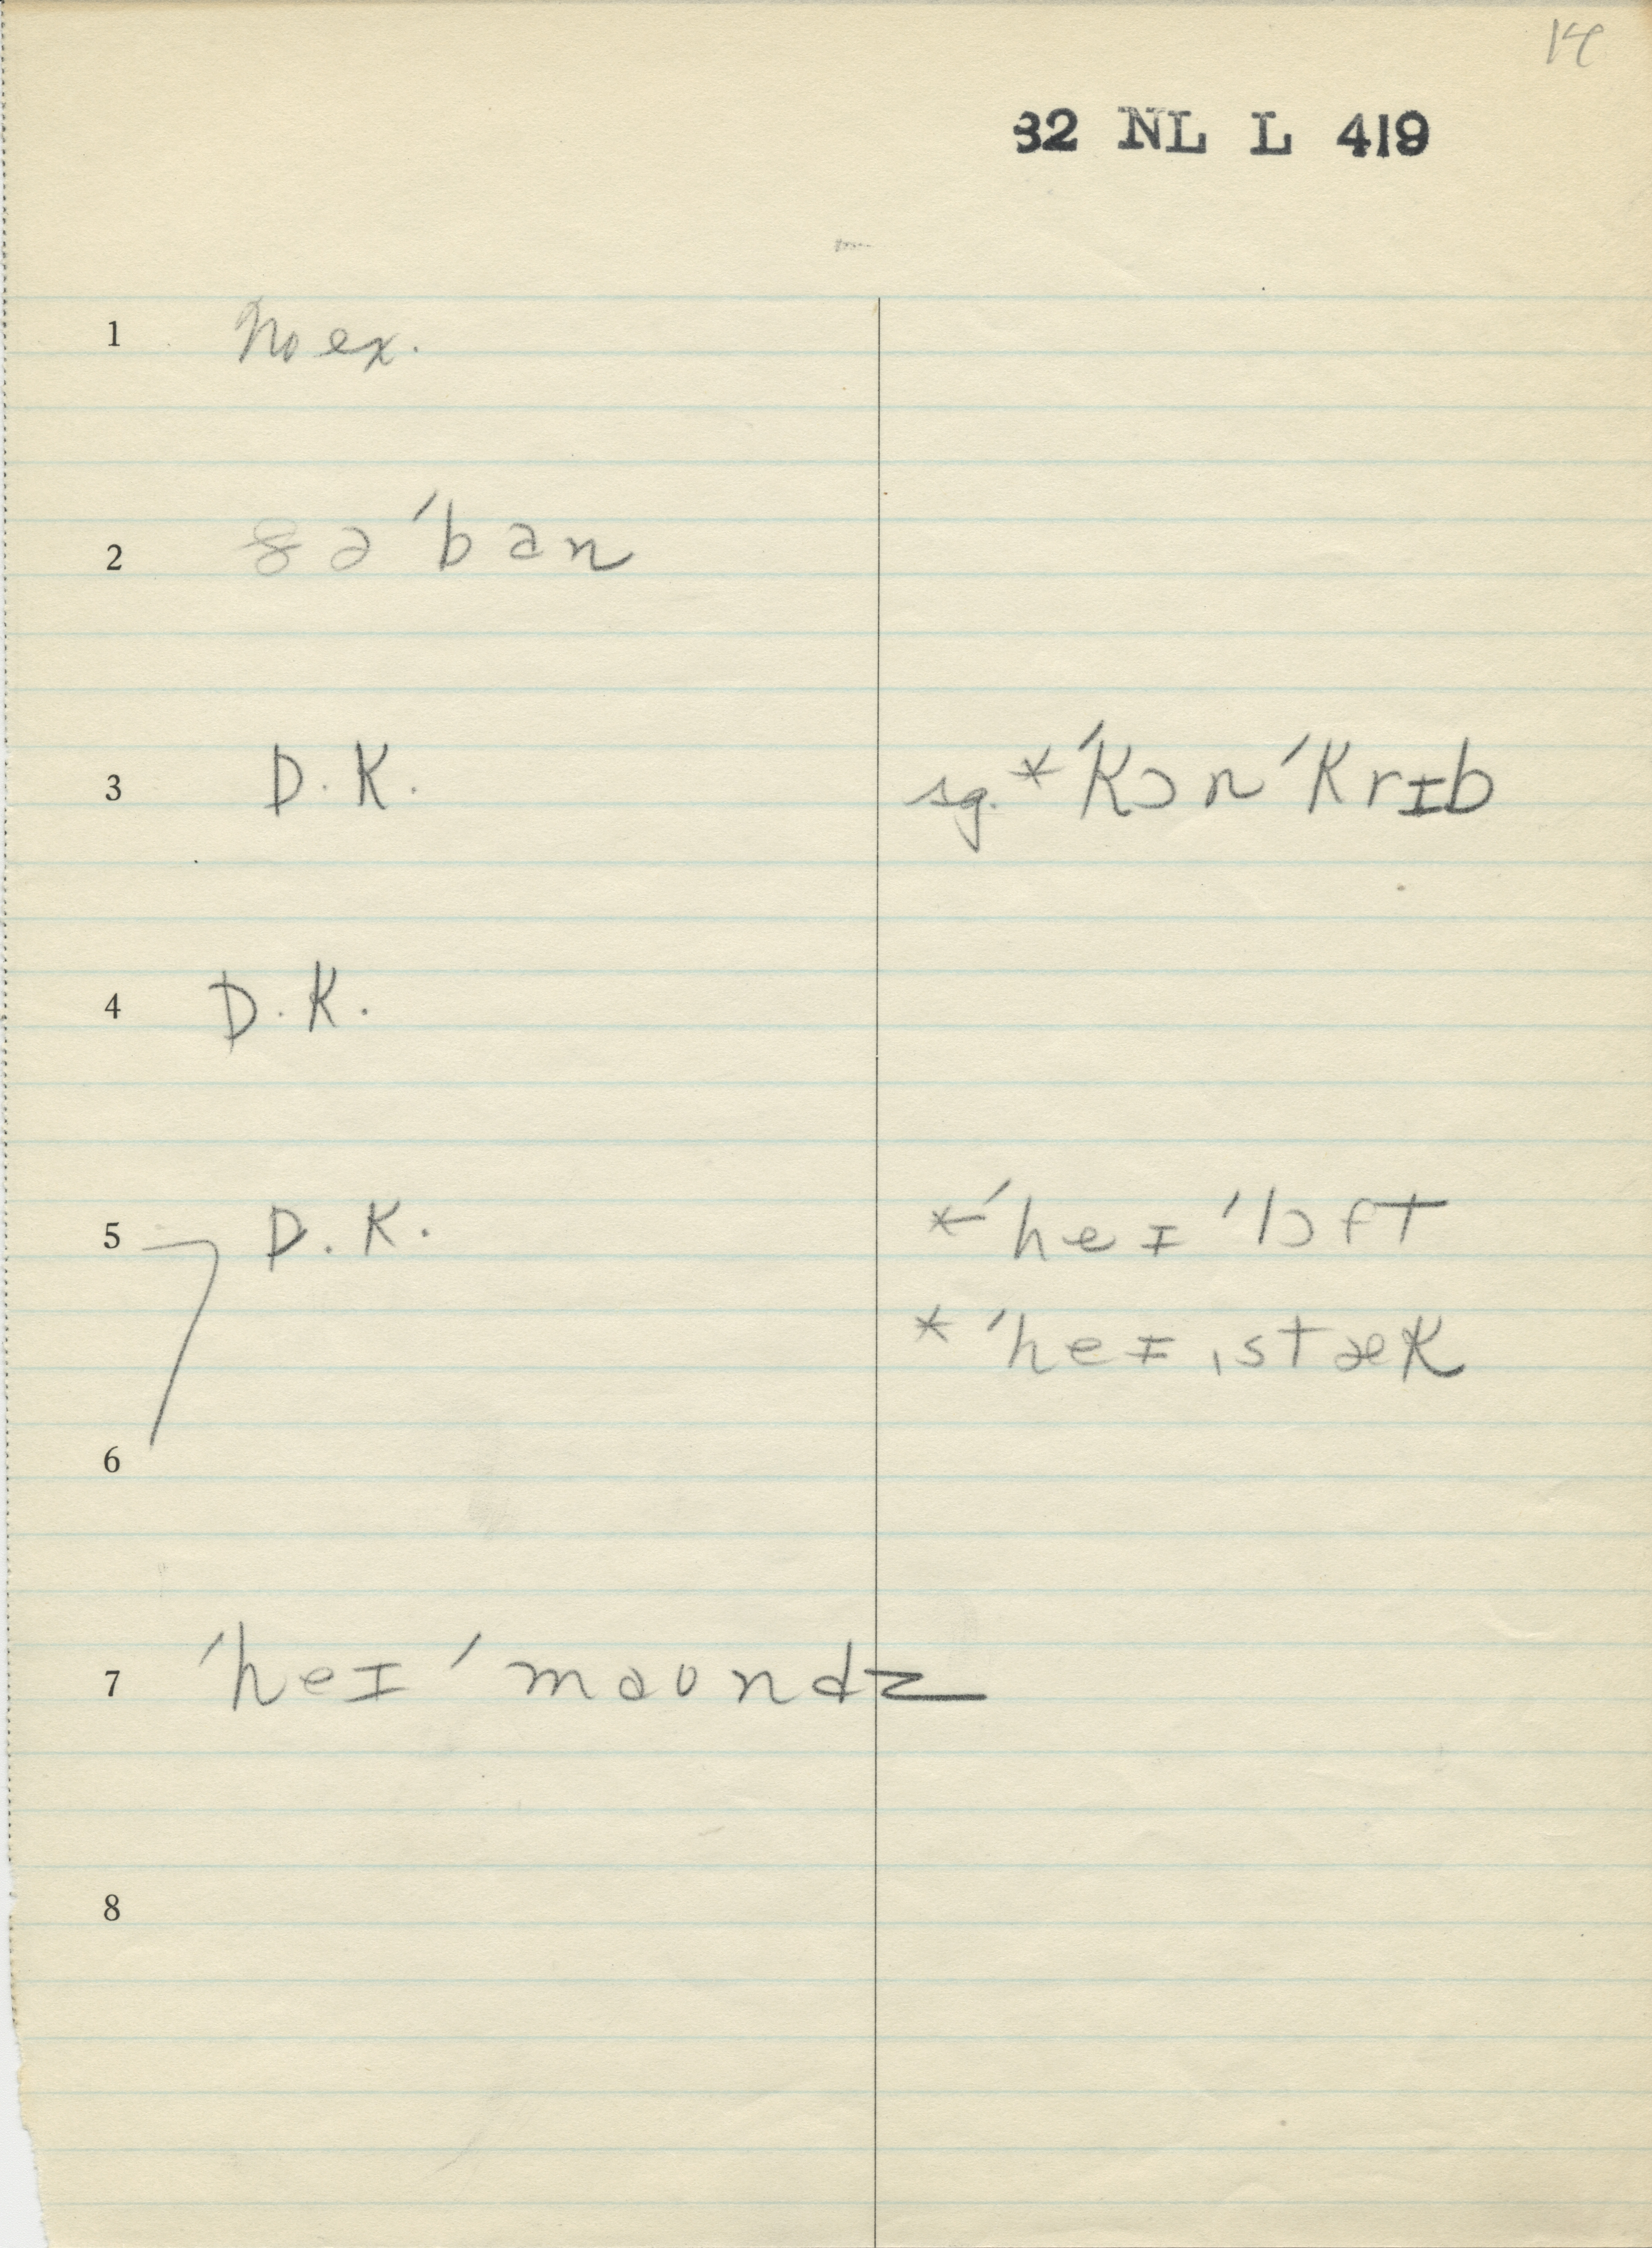 14
32 NL L 419
1 No ex.
2 ðə ˈban
3 D.K. sg. *ˈkɔnˈkrɪb
4 D.K.
5 D.K. *ˈheɪˈlɔft
*ˈheɪˌstæk
6
7 ˈheɪˈmaʊndz
8